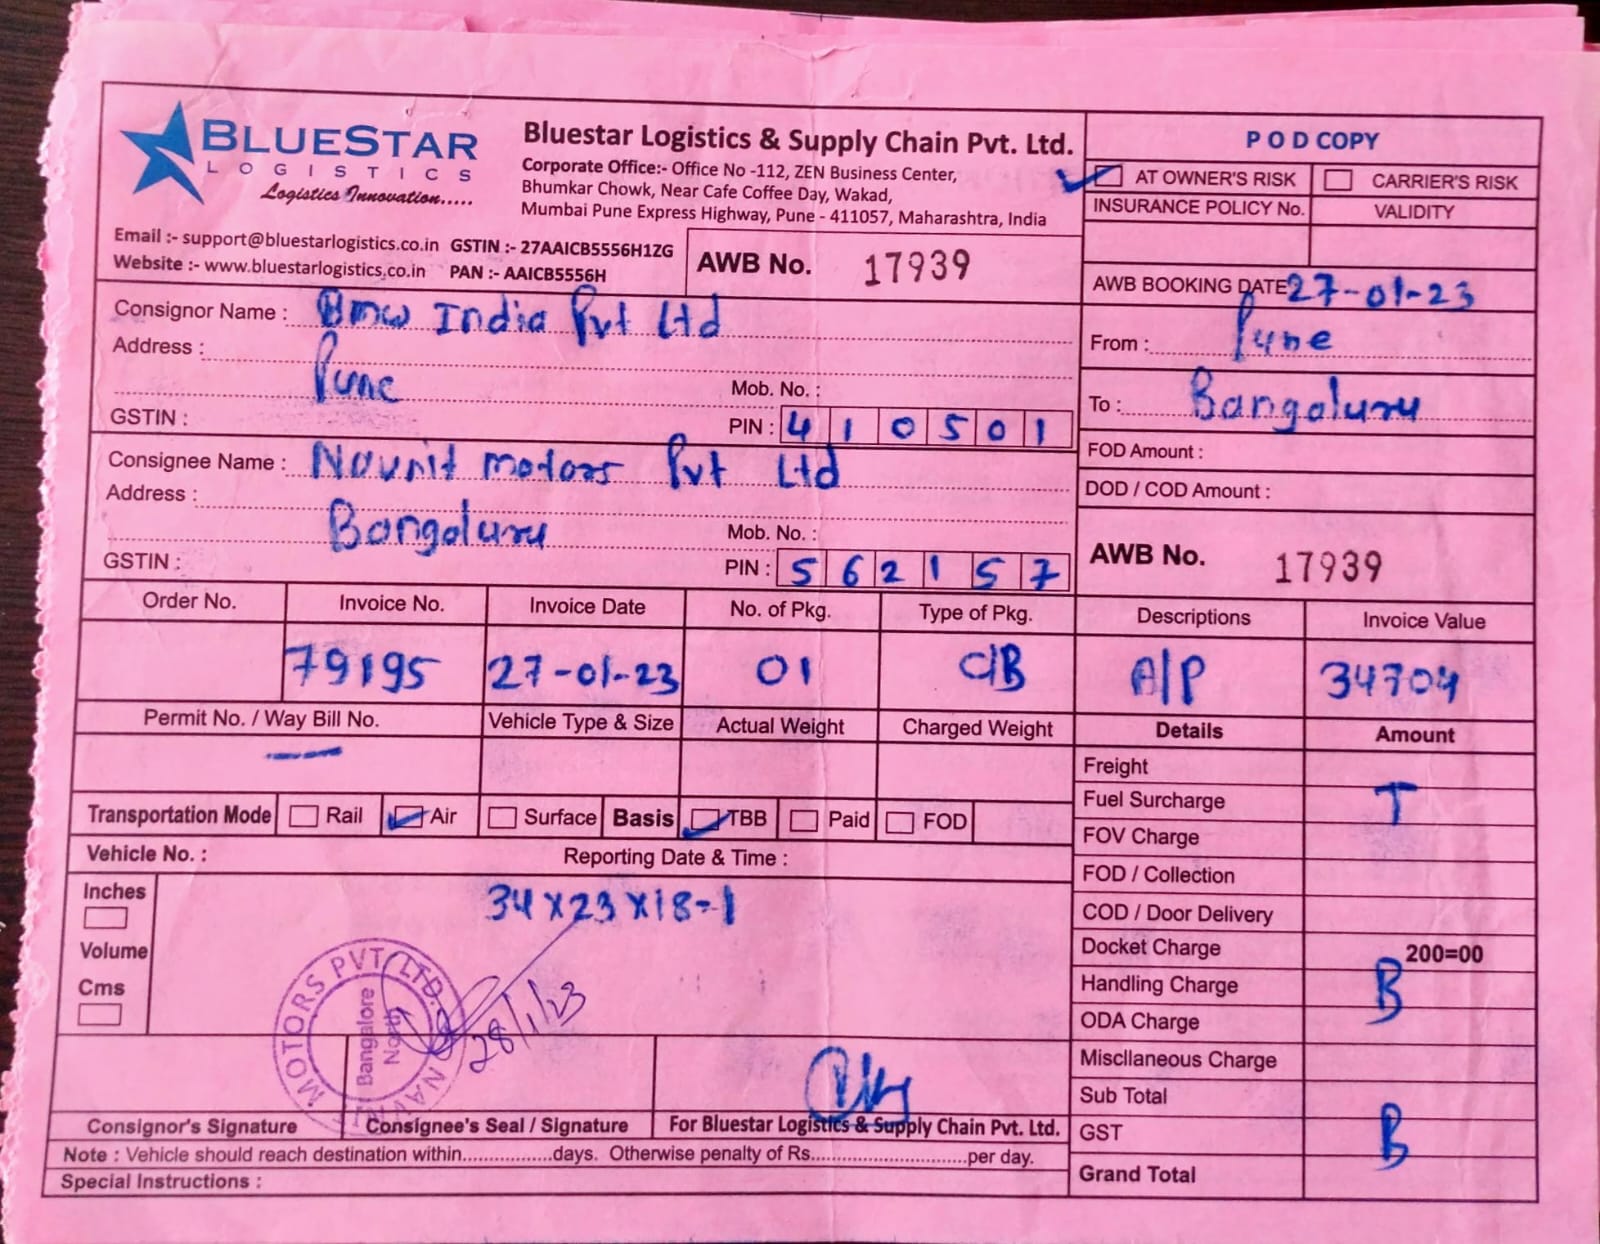 BLUESTAR
LOGISTICS
Logistics Innovation.....
Bluestar Logistics & Supply Chain Pvt. Ltd.
Corporate Office:- Office No -112, ZEN Business Center,
Bhumkar Chowk, Near Cafe Coffee Day, Wakad,
Mumbai Pune Express Highway, Pune - 411057, Maharashtra, India
Email :- support@bluestarlogistics.co.in GSTIN :- 27AAICB5556H1ZG
Website :- www.bluestarlogistics.co.in PAN :- AAICB5556H
AWB No. 17939
P O D COPY
AT OWNER'S RISK CARRIER'S RISK
INSURANCE POLICY No. VALIDITY
AWB BOOKING DATE 27-01-23
From : Pune
To : Bangaluru
FOD Amount :
DOD / COD Amount :
AWB No. 17939
Consignor Name : Bmw India Pvt Ltd
Address :
Pune Mob. No. :
GSTIN : PIN : 410501
Consignee Name : Navnit motors Pvt Ltd
Address :
Bangaluru Mob. No. :
GSTIN : PIN : 562157
Order No. Invoice No. Invoice Date No. of Pkg. Type of Pkg. Descriptions Invoice Value
79195 27-01-23 01 C/B A/P 34704
Permit No. / Way Bill No. Vehicle Type & Size Actual Weight Charged Weight Details Amount
Freight
Fuel Surcharge T
FOV Charge
FOD / Collection
COD / Door Delivery
Docket Charge 200=00
Handling Charge B
ODA Charge
Miscllaneous Charge
Sub Total
GST B
Grand Total
Transportation Mode Rail Air Surface Basis TBB Paid FOD
Vehicle No. : Reporting Date & Time :
Inches
Volume
Cms
34x23x18-1
NAVNIT MOTORS PVT. LTD.
Bangalore
North
28/1/23
Consignor's Signature Consignee's Seal / Signature For Bluestar Logistics & Supply Chain Pvt. Ltd.
Note : Vehicle should reach destination within...............days. Otherwise penalty of Rs..........................per day.
Special Instructions :